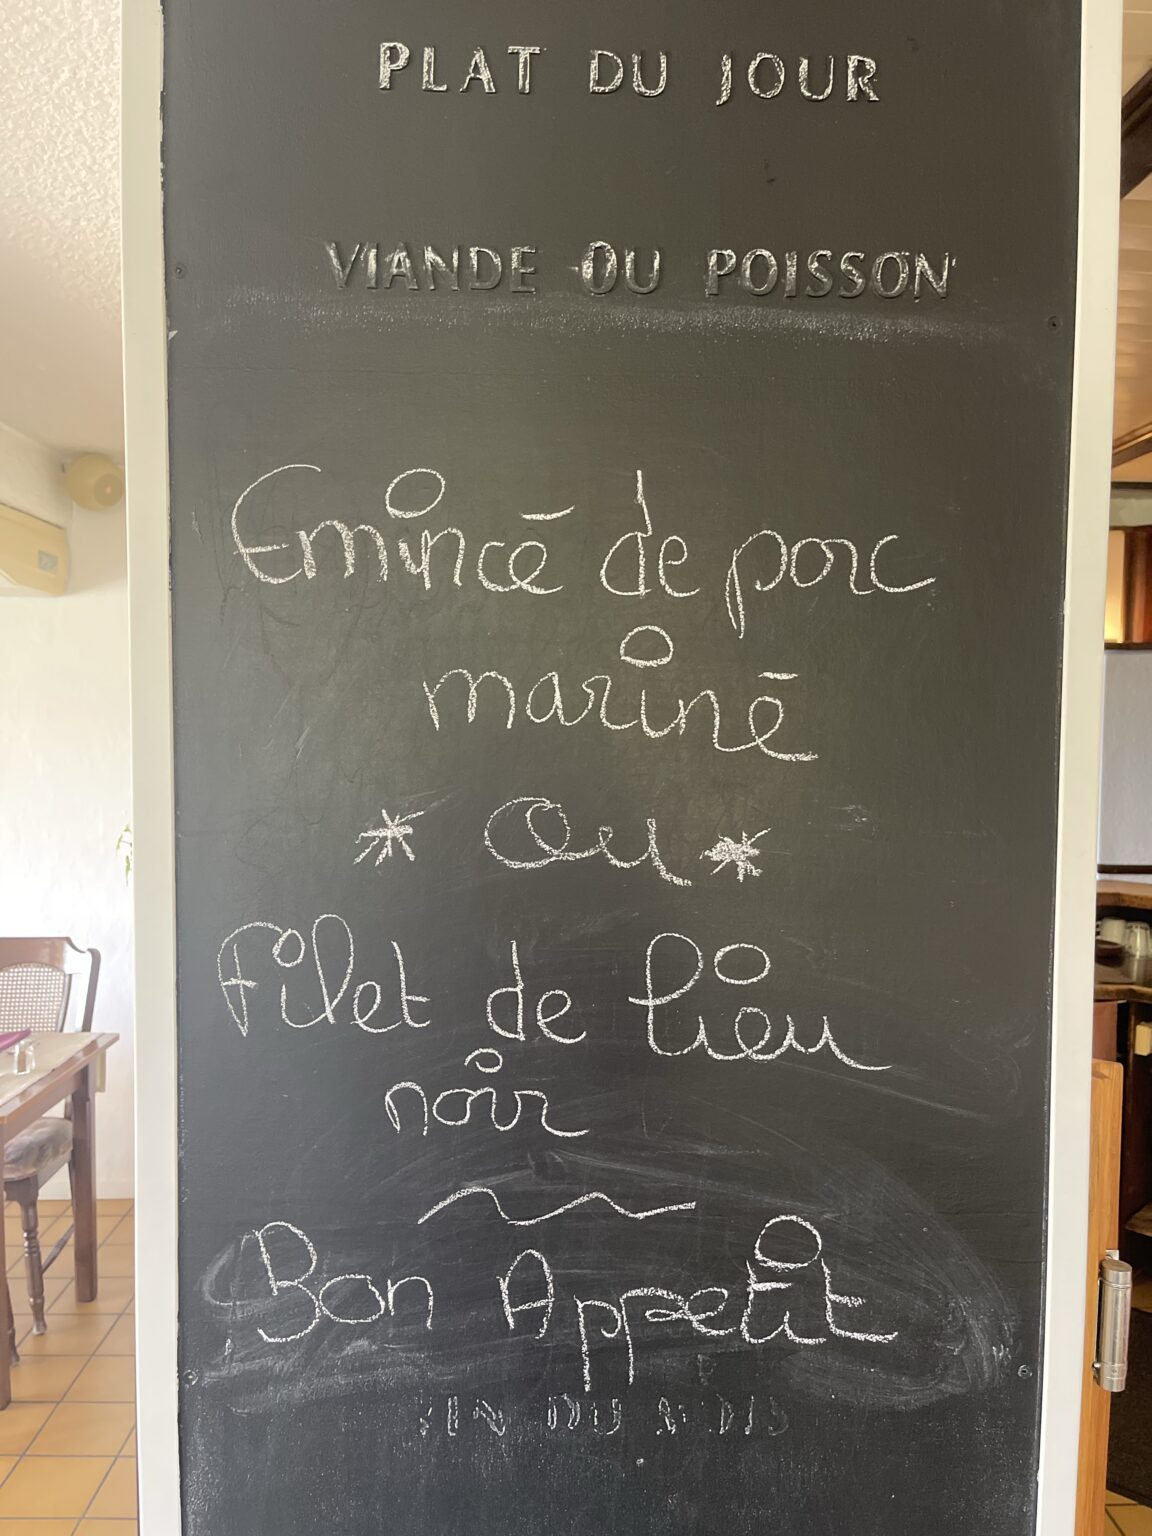 PLAT DU JOUR
VIANDE OU POISSON
Emincé de porc
mariné
* Ou *
Filet de lieu
noir
Bon Appetit
DU